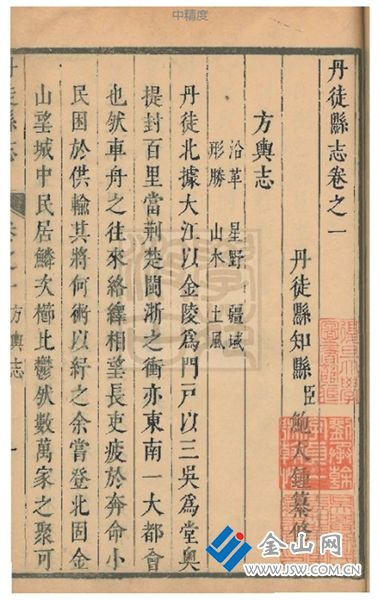 中精度
丹徒縣志卷之一
丹徒縣知縣臣鮑天鍾纂修
方輿志
沿革 星野 疆域
形勝 山水 土風
丹徒北據大江以金陵爲門戶以三吳爲堂奧
提封百里當荆楚閩浙之衝亦東南一大都會
也然車舟之往來絡繹相望長吏疲於奔命小
民困於供輸其將何術以紓之余嘗登北固金
山望城中民居鱗次櫛比鬱然數萬家之聚可
丹徒縣志
卷之一 方輿志
一
金山网
www.JSW.com.cn